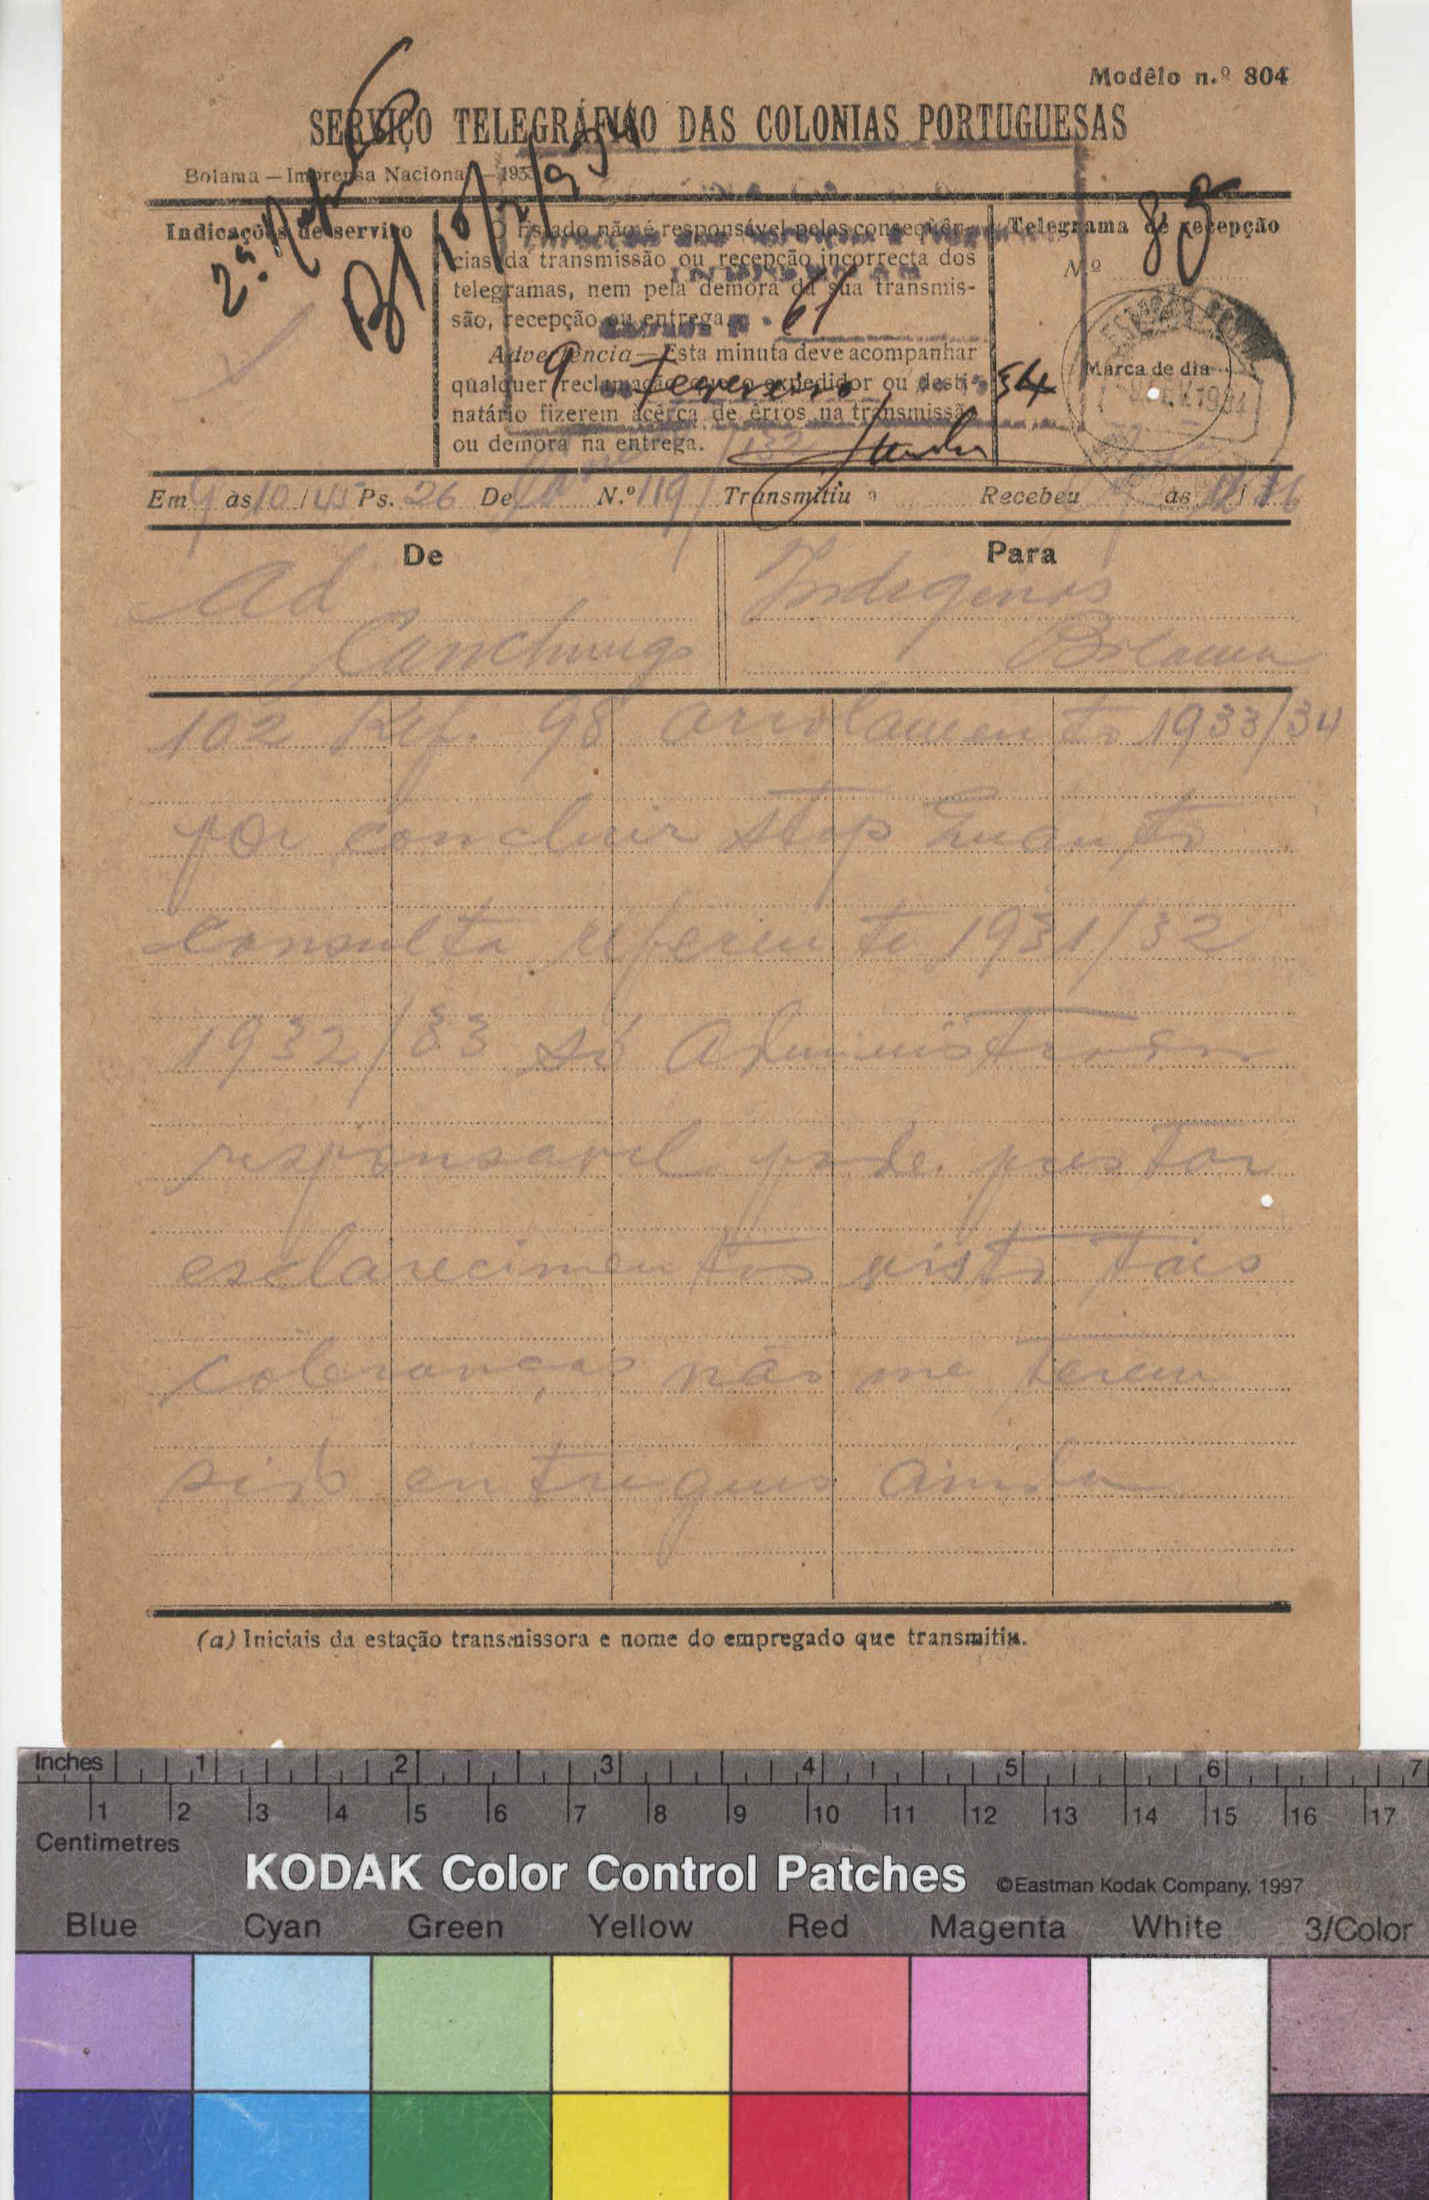 Modêlo n.º 804
SERVIÇO TELEGRÁFICO DAS COLONIAS PORTUGUESAS
Bolama — Imprensa Nacional — 193
2.ª Rep
10/2/934
Indicações de serviço
O Estado não é responsável pelas conseqùên-
cias da transmissão ou recepção incorrecta dos
telegramas, nem pela demora da sua transmis-
são, recepção ou entrega.
Advertência — Esta minuta deve acompanhar
qualquer reclamação que o expedidor ou desti-
natário fizerem acêrca de êrros na transmissão
ou demora na entrega.
61
9 Fevereiro 34
132
Telegrama de recepção
N.º 85
Marca de dia
Em 9 às 10/45 Ps. 26 De N.º 119 Transmitiu a Recebeu às 12/16
De
Para
Ad
Canchungo
Indigenas
Bolama
102 Ref. 98 arrolamento 1933/34
por concluir stop Quanto
consulta referente 1931/32
1932/33 só Administrador
responsavel pode prestar
esclarecimentos visto tais
cobranças não me terem
sido entregues ainda
(a) Iniciais da estação transmissora e nome do empregado que transmitiu.
Inches 1 2 3 4 5 6 7
1 2 3 4 5 6 7 8 9 10 11 12 13 14 15 16 17
Centimetres
KODAK Color Control Patches ©Eastman Kodak Company, 1997
Blue Cyan Green Yellow Red Magenta White 3/Color